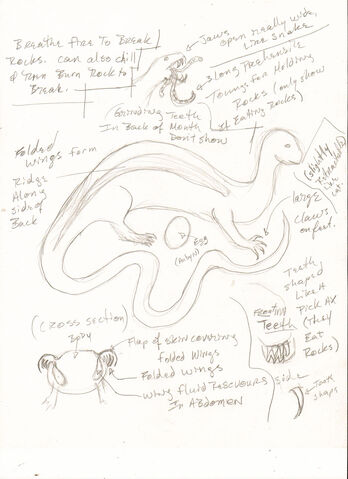 Breathe fire To Break
Rocks. can also chill
& Then Burn Rock to
Break.
Jaws
open really wide,
Like Snakes
3 Long Prehensile
Toungs for Holding
Rocks (only show
If Eating Rocks)
Grinding Teeth
In Back of Mouth
Don't show
Folded
wings form
Ridge
Along
side of
Back
(Slightly
Retractable)
Like
Cat.
large
claws
on feet.
Egg
Teeth
shaped
Like A
Pick Ax
(They
Eat
Rocks)
Front
Teeth
Tooth
shape
(Cross section)
Body
Flap of skin covering
folded wings
Folded wings
wing fluid Rescvours side
In Abdomen